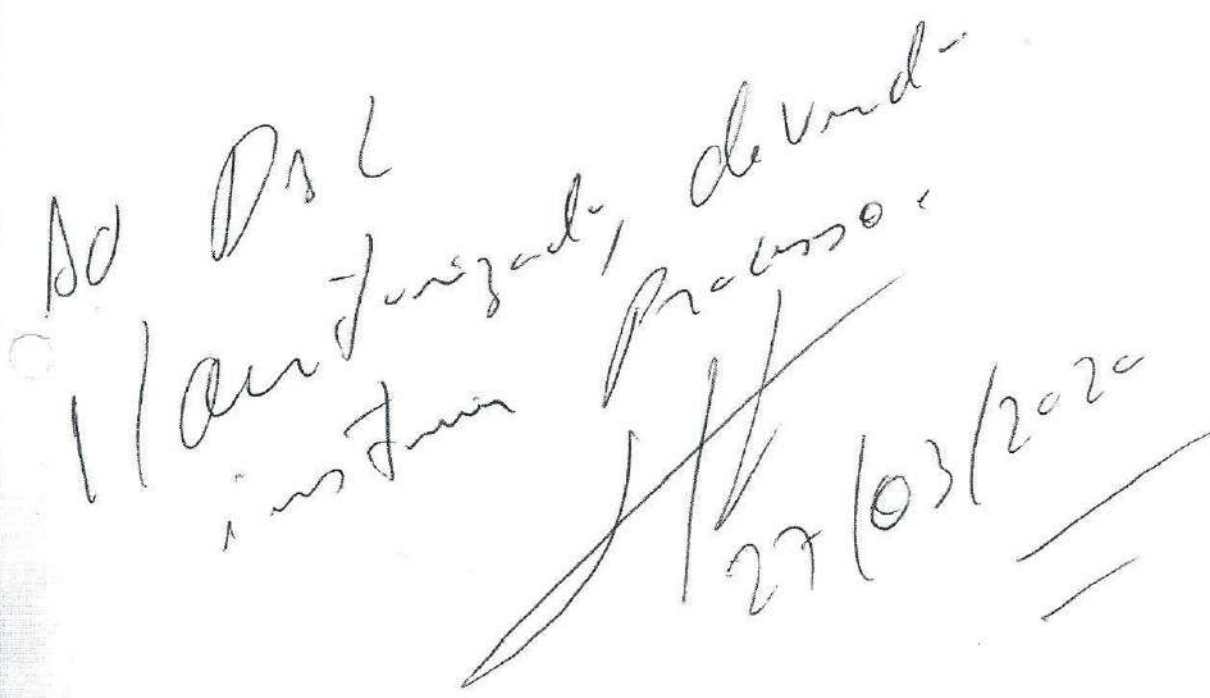 Ao DSL
1/ autorizado, devendo
instruir processo.
27/03/2020